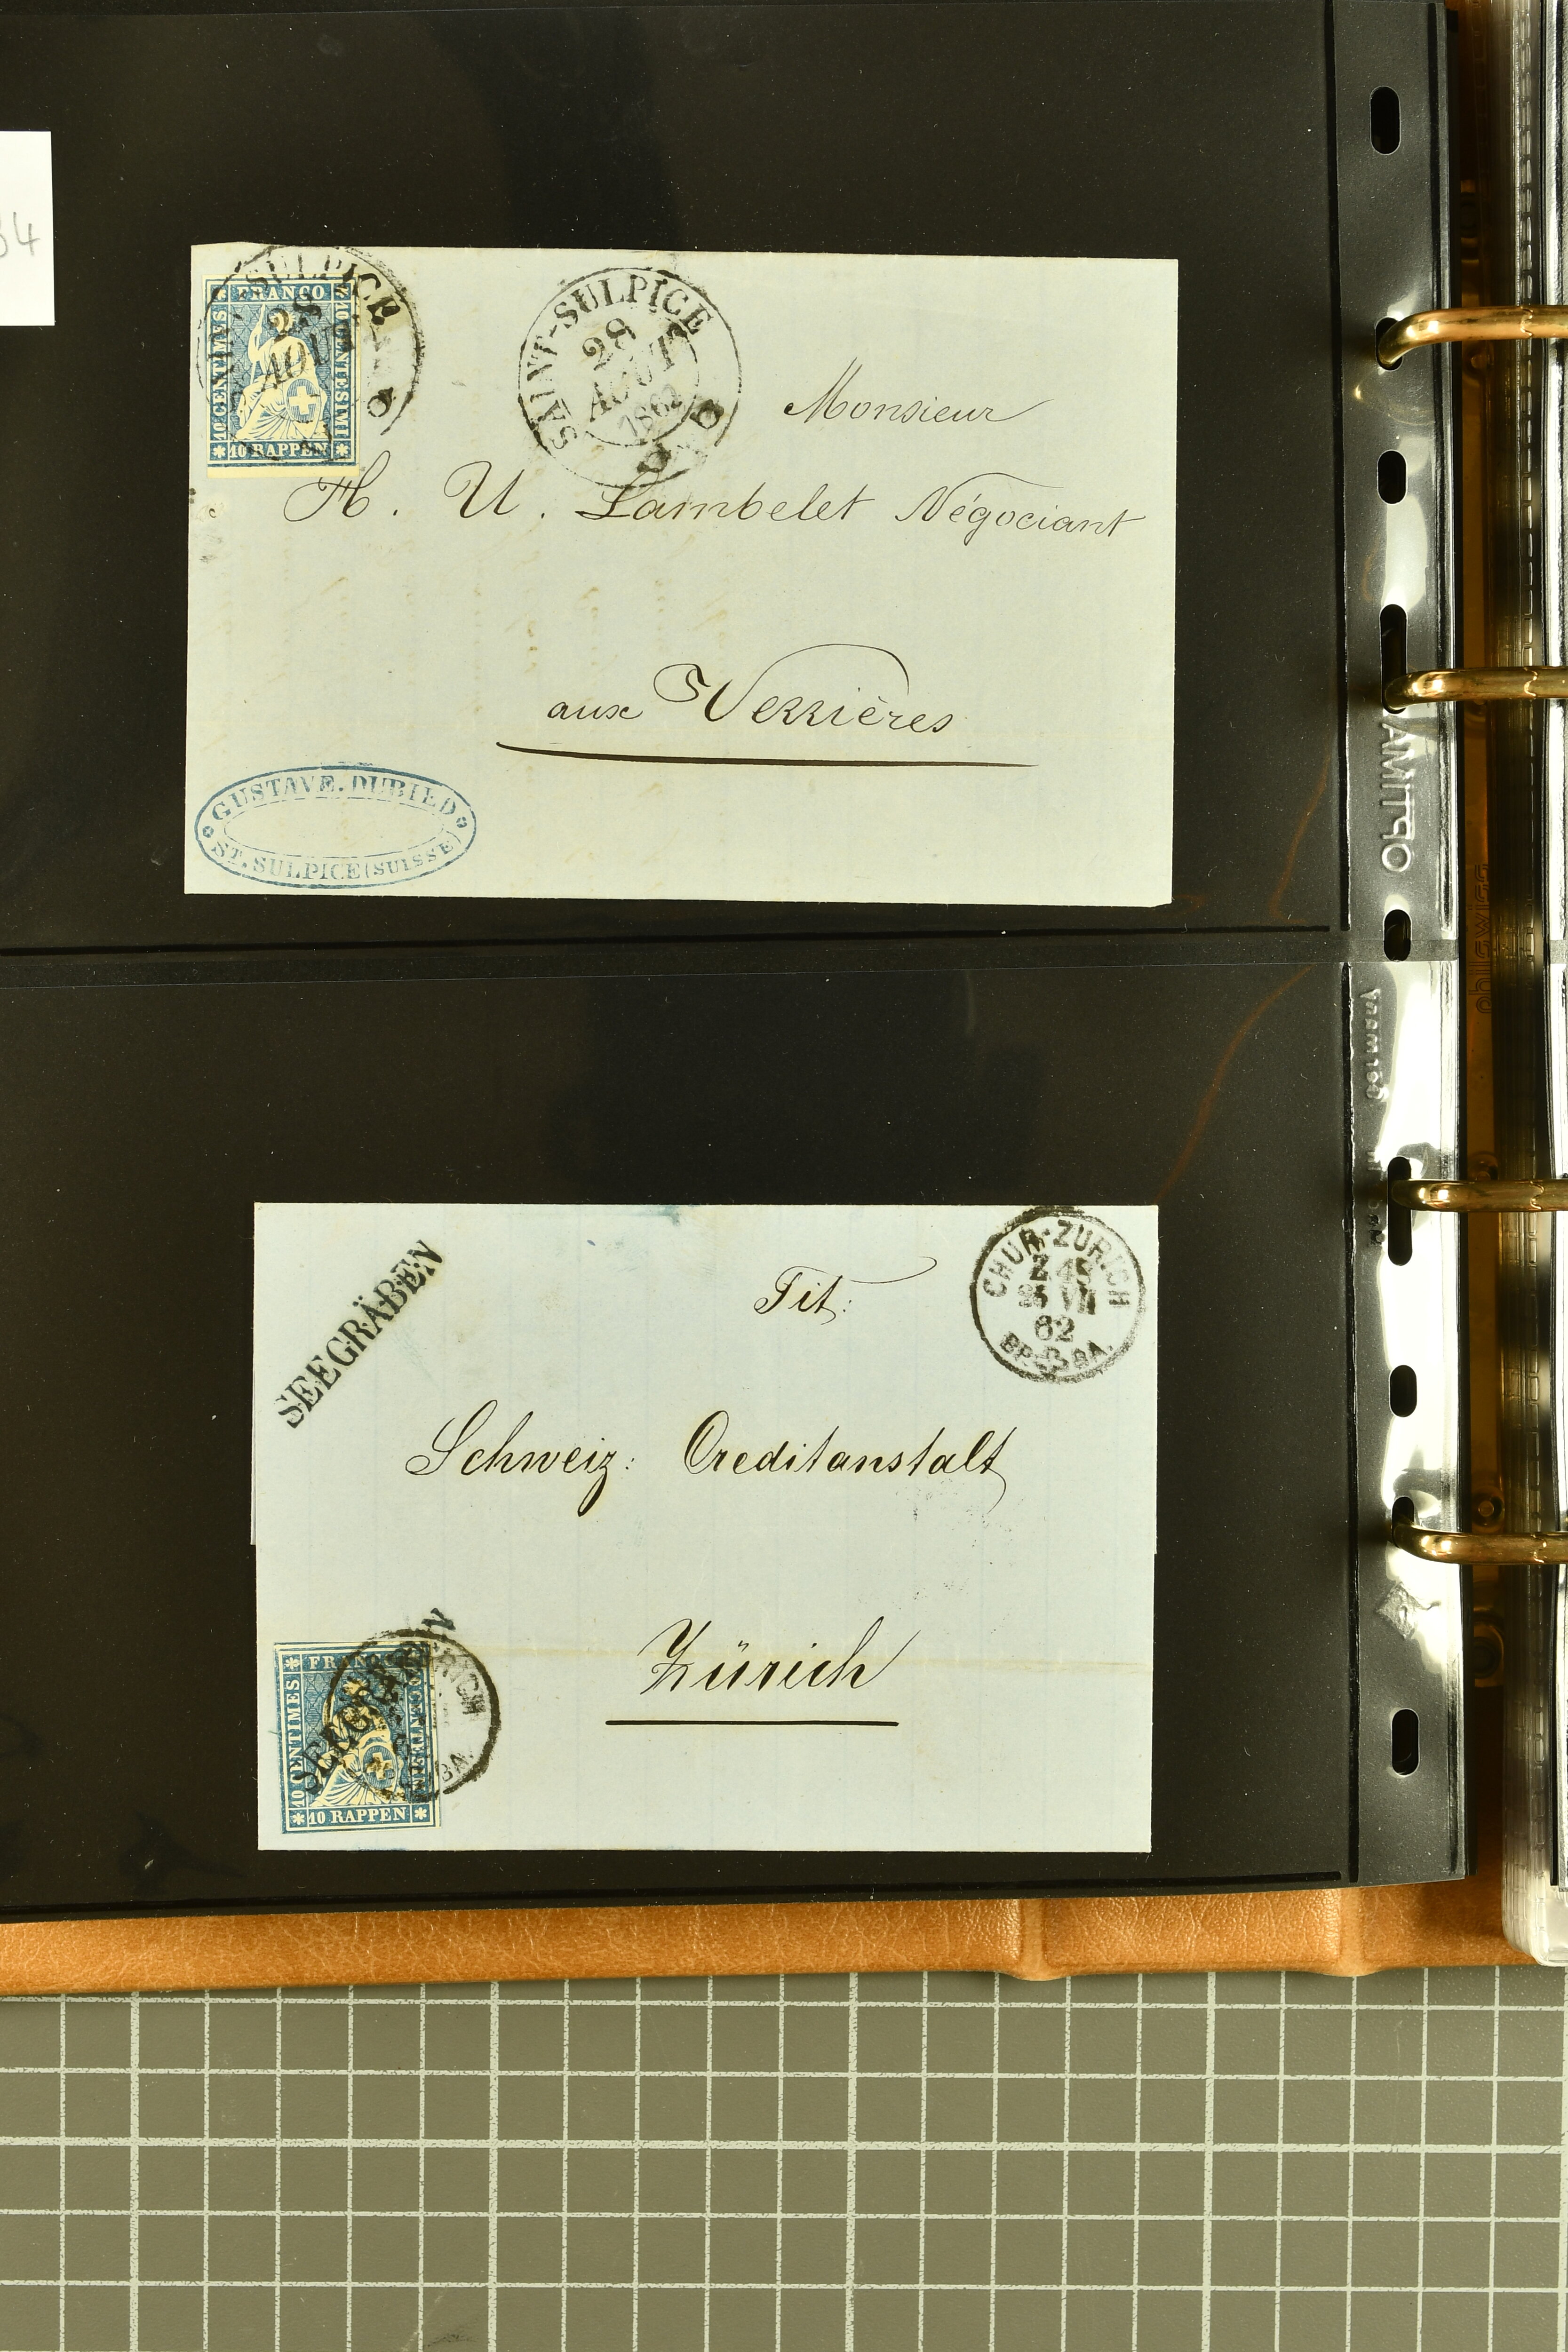 34
SAINT-SULPICE
28
AOUT
FRANCO
10 CENTIMES
10 CENTESIMI
10 RAPPEN
SAINT-SULPICE
28
AOUT
1862
Monsieur
H. U. Lambelet Négociant
aux Verrières
GUSTAVE. DUBIED
ST. SULPICE (SUISSE)
OPTIMA
Germany
philswiss
SEEGRÄBEN
Tit:
CHUR-ZURICH
Z 48
25 VII
62
Schweiz: Creditanstalt
Zürich
SEEGRÄBEN
FRANCO
10 CENTIMES
10 RAPPEN